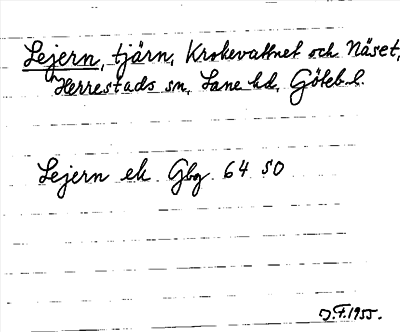 Lejern, tjärn, Krokevattnet och Näset,
Herrestads sn, Lane hd, Göteb. l.
Lejern ek. Gbg 64 SO
J.F. 1955.